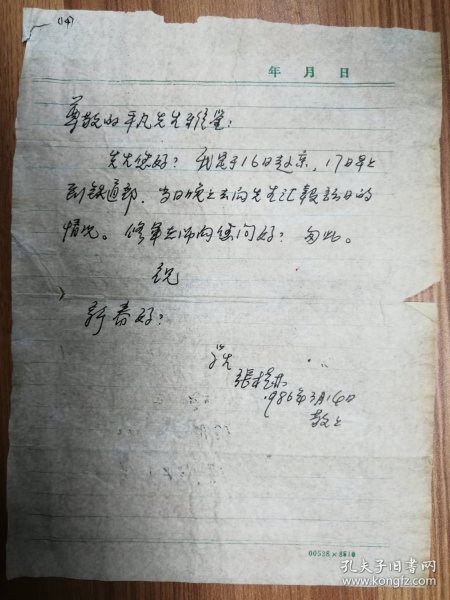 (14)
年 月 日
尊敬的平凡先生雅鉴:
先生您好?我是于16日赴京,17日早上
到铁道部,当日晚上去向先生汇报訪日的
情况。修军老师向您问好?匆此。
祝
新春好?
学生
張
1986年3月14日
敬上
00528×8510
孔夫子旧书网
www.kongfz.com